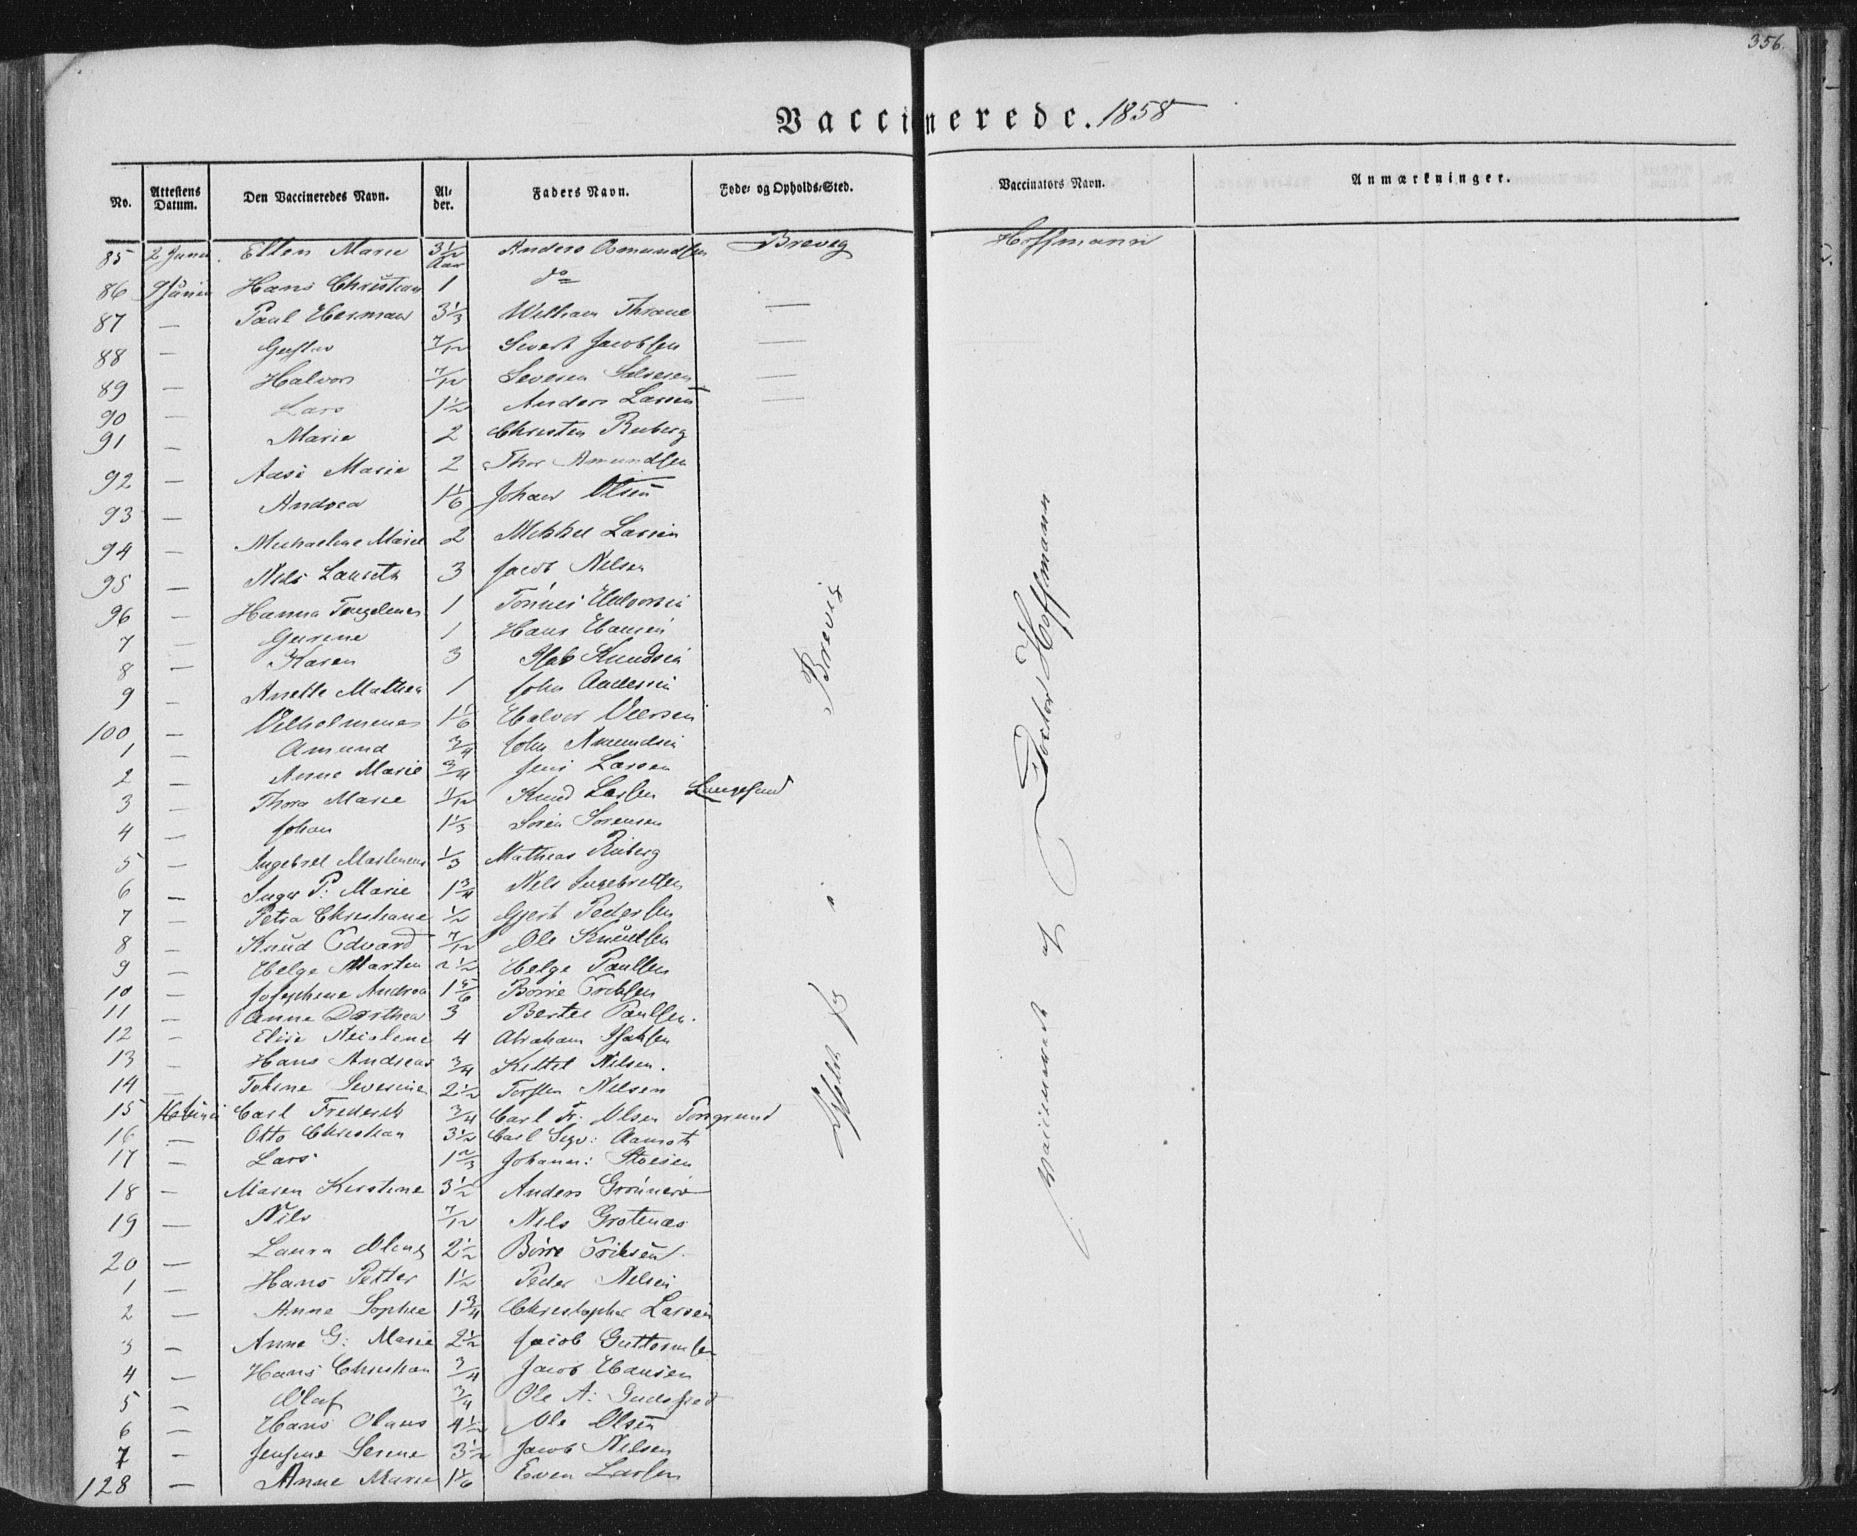 356.
Vaccinerede. 1858
No. Attestens Datum. Den Vaccineredes Navn. Al- der. Faders Navn. Føde- og Opholds-Sted. Vaccinators Navn. Anmærkninger.
85 2 Juni. Ellen Marie 3 1/2 Aar Anders Osmundsen Brevig Hoffmann
86 9 Juni Hans Christian 1 do
87 — Paul Herman 3 1/3 William Thrane —
88 — Gustav 7/12 Sivert Jacobsen —
89 — Halvor 7/12 —
90 — Lars 1 1/2 Anders Larsen —
91 — Marie 2 Christen Ruberg
92 — Aase Marie 2 Thor Amundsen
93 — Andrea 1 1/6 Johan Olsen
94 — Michaeline Marie 2 Mikkel Larsen
95 — Nils Lauritz 3 Jacob Nilsen
96 — Hanna 1 Tönnes Halvorsen
7 — Gurine 1 Hans Hansen
8 — Karen 3 Knudsen
9 — Anette Mathea 1 John Andersen
100 — Vilhelmine 1 1/6 Halvor
1 — Amund 3/4 John Amundsen
2 — Anne Marie 3/4 Jens Larsen
3 — Thora Marie 11/12 Knud Larsen Langesund
4 — Johan 1 1/3 Sören Sörensen
5 — Ingebret 1/3 Mathias Ruberg
6 — Inger P: Marie 1 3/4 Nils Ingebretsen
7 — Petra Christiane 1/2 Gjert Pedersen
8 — Knud Edvard 7/12 Ole Knudsen
9 — Helge Martin 2 1/2 Helge Paulsen
10 — Josephine Andrea 1 5/6 Börre Eriksen
11 — Anne Dorthea 3 Bertel Paulsen.
12 — Elise Nicoline 4 Abraham Isaksen
13 — Hans Andreas 3/4 Kittel Nilsen.
14 — Tobine Severine 2 1/2 Torsten Nilsen
15 Carl Frederik 3/4 Carl Fr. Olsen Porsgrund
16 — Otto Christian 3 1/2 Carl Sigv: Aamodt
17 — Lars 1 2/3 Johann:
18 — Maren Kirstine 3 1/2 Anders
19 — Nils 7/12 Nils Grotenæs
20 — Laura 2 1/2 Börre Eriksen
1 — Hans Petter 1 1/2 Peder Nilsen
2 — Anne Sophie 1 3/4 Christopher Larsen
3 — Anne G: Marie 2 1/2 Jacob Guttormsen
4 — Hans Christian 3/4 Jacob Hansen
5 — Olaf 3/4 Ole A:
6 — Hans Olaus 4 1/2 Ole Olsen
7 — Jensine Serine 3 1/2 Jacob Nilsen
128 — Anne Marie 1 1/6 Even Larsen
i Brevig
Vaccinerede af Doctor Hoffmann